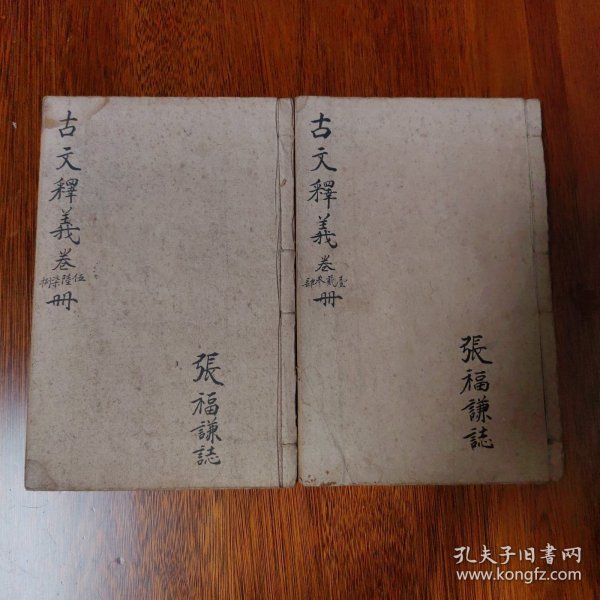 古文釋義卷伍陸柒捌冊
張福謙誌
古文釋義卷冊
張福謙誌
孔夫子旧书网
www.kongfz.com